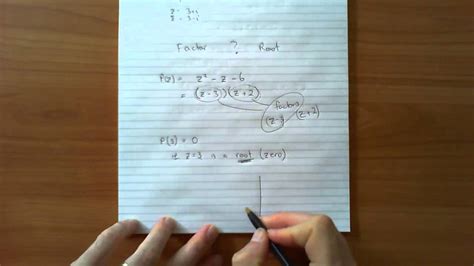 z = 3+i
z = 3-i
Factor ? Root
P(z) = z² - z - 6
= (z-3)(z+2)
factors
(z-3) (z+2)
P(3) = 0
if z=3 is a root (zero)